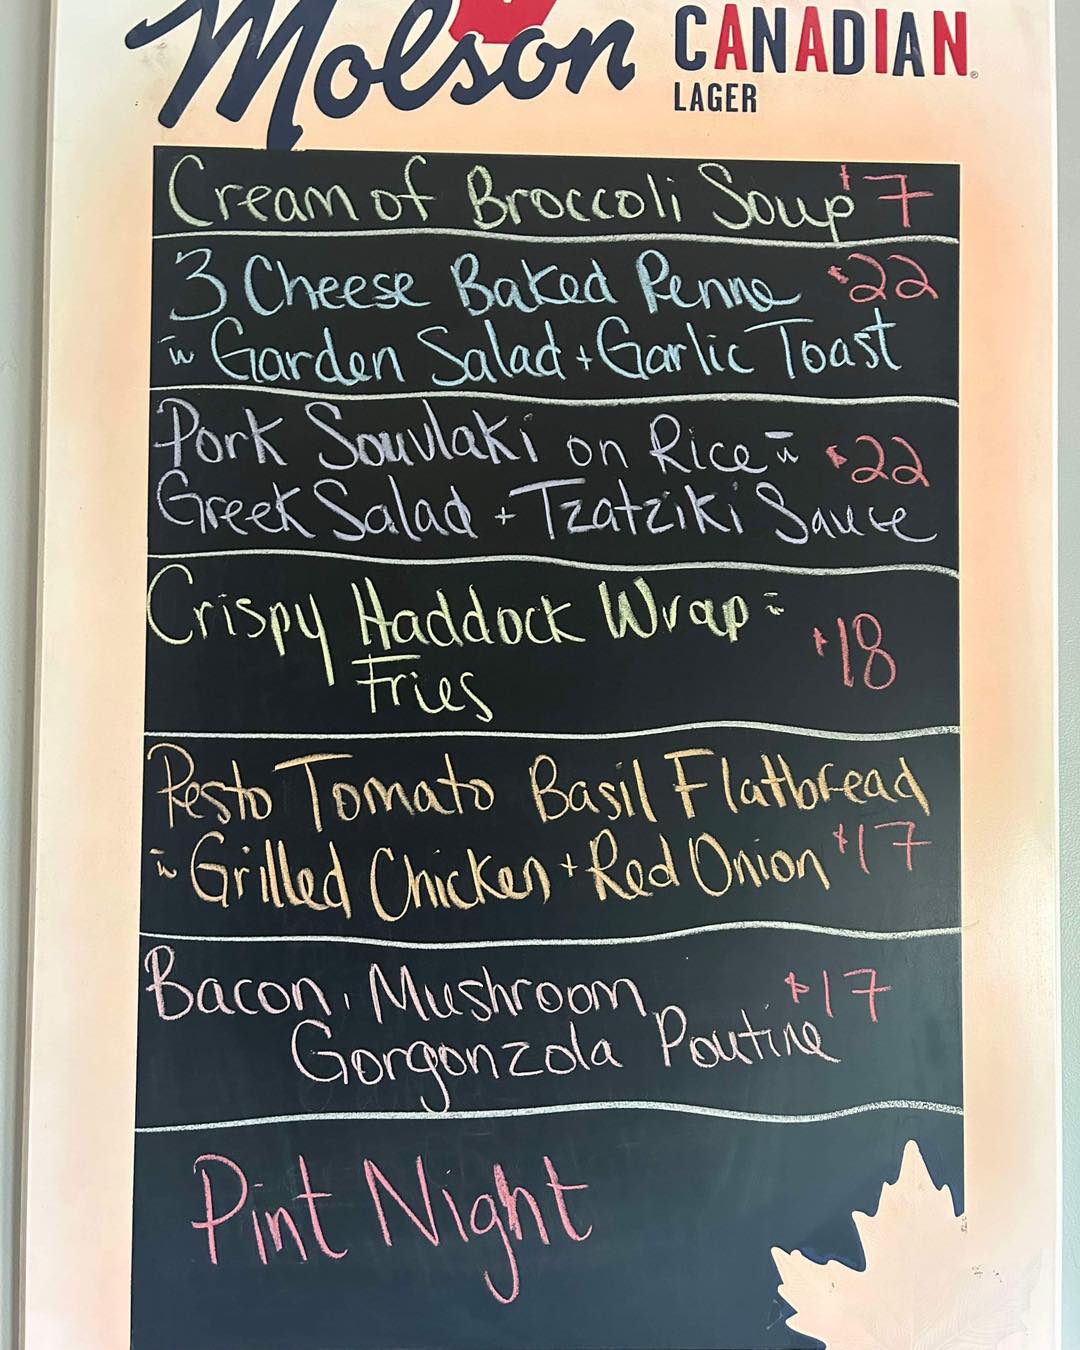 Molson CANADIAN
LAGER
Cream of Broccoli Soup $7
3 Cheese Baked Penne $22
w Garden Salad + Garlic Toast
Pork Souvlaki on Rice w $22
Greek Salad + Tzatziki Sauce
Crispy Haddock Wrap w
Fries $18
Pesto Tomato Basil Flatbread
w Grilled Chicken + Red Onion $17
Bacon, Mushroom, $17
Gorgonzola Poutine
Pint Night